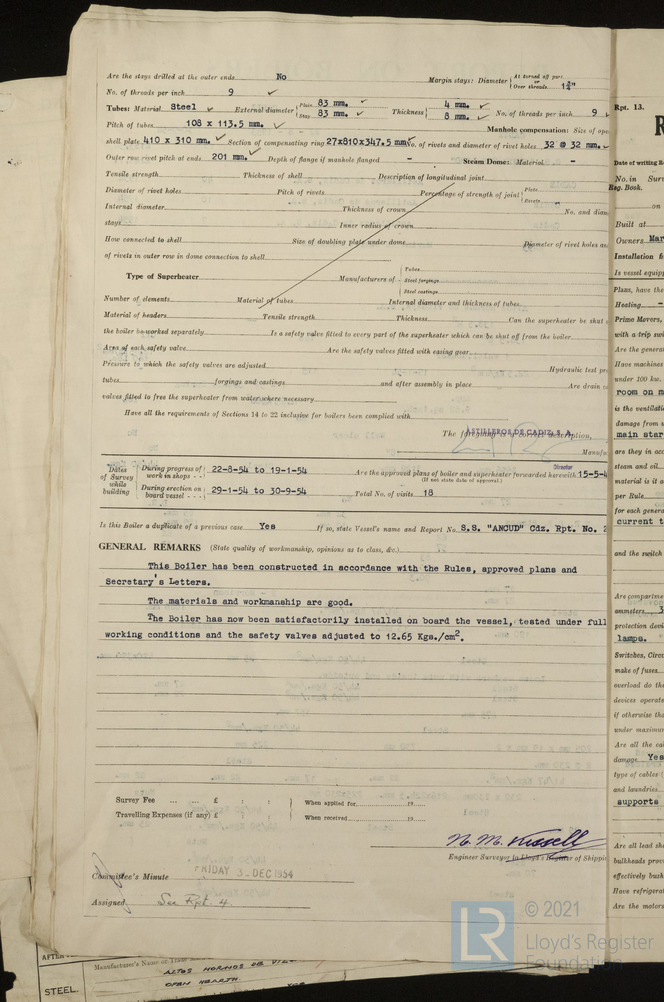 Are the stays drilled at the outer ends No Margin stays: Diameter { At turned off part, or Over threads 1¾"
No. of threads per inch 9
Tubes: Material Steel External diameter { Plain 83 mm. Stay 83 mm. Thickness { 4 mm. 8 mm. No. of threads per inch 9
Pitch of tubes 108 x 113.5 mm. Manhole compensation: Size of
shell plate 410 x 310 mm. Section of compensating ring 27x810x347.5 mm No. of rivets and diameter of rivet holes 32 @ 32 mm.
Outer row rivet pitch at ends 201 mm. Depth of flange if manhole flanged - Steam Dome: Material -
Tensile strength Thickness of shell Description of longitudinal joint
Diameter of rivet holes Pitch of rivets Percentage of strength of joint { Plate Rivets
Internal diameter Thickness of crown No. and
stays Inner radius of crown
How connected to shell Size of doubling plate under dome Diameter of rivet holes
of rivets in outer row in dome connection to shell
Type of Superheater Manufacturers of { Tubes Steel forgings Steel castings
Number of elements Material of tubes Internal diameter and thickness of tubes
Material of headers Tensile strength Thickness Can the superheater be shut
the boiler be worked separately Is a safety valve fitted to every part of the superheater which can be shut off from the boiler
Area of each safety valve Are the safety valves fitted with easing gear
Pressure to which the safety valves are adjusted Hydraulic test
tubes forgings and castings and after assembly in place Are drain
valves fitted to free the superheater from water where necessary
Have all the requirements of Sections 14 to 22 inclusive for boilers been complied with
ASTILLEROS DE CADIZ, S. A.
The foregoing is a correct description,
Director
Dates of Survey while building { During progress of work in shops - - 22-8-54 to 19-1-54 Are the approved plans of boiler and superheater forwarded herewith 15-5-4
(If not state date of approval.)
During erection on board vessel - - - 29-1-54 to 30-9-54 Total No. of visits 18
Is this Boiler a duplicate of a previous case Yes If so, state Vessel's name and Report No. S.S. "ANCUD" Cdz. Rpt. No.
GENERAL REMARKS (State quality of workmanship, opinions as to class, &c.)
This Boiler has been constructed in accordance with the Rules, approved plans and
Secretary's Letters.
The materials and workmanship are good.
The Boiler has now been satisfactorily installed on board the vessel, tested under full
working conditions and the safety valves adjusted to 12.65 Kgs./cm².
Survey Fee ... ... £ : : } When applied for 19
Travelling Expenses (if any) £ : : } When received 19
N. M. Russell
Engineer Surveyor to Lloyd's Register of
Committee's Minute FRIDAY 3 DEC 1954
Assigned See Rpt. 4.
Manufacturer's Name or Trade
STEEL. ALTOS HORNOS DE
OPEN HEARTH.
Rpt. 13.
Date of writing
No. in
Reg. Book.
Built at
Owners
Installation
Is vessel
Plans, have the
Heating
Prime Movers,
with a trip
Are the
Have machines
under 100 kw.
room on
is the
damage from
main
are they in
steam and oil
material is it
per Rule
for each
current
and the switch
ammeters
protection
lamps.
Switches,
make of fuses
overload do the
devices
if otherwise
under
Are all the
damage Yes
type of cables
and laundries
supports
Are all lead
bulkheads
effectively
Have
Are the
© 2021
LR Lloyd's Register
Foundation